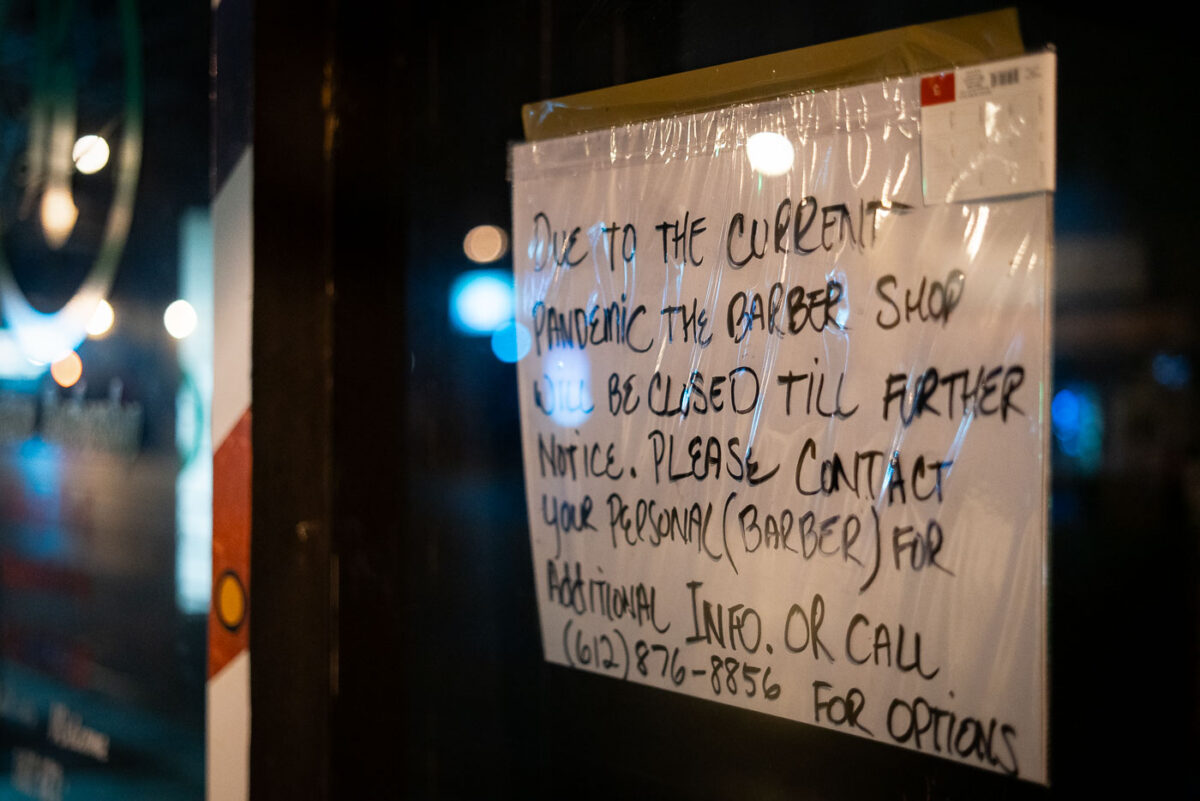 DUE TO THE CURRENT
PANDEMIC THE BARBER SHOP
WILL BE CLOSED TILL FURTHER
NOTICE. PLEASE CONTACT
YOUR PERSONAL (BARBER) FOR
ADDITIONAL INFO. OR CALL
(612) 876-8856 FOR OPTIONS